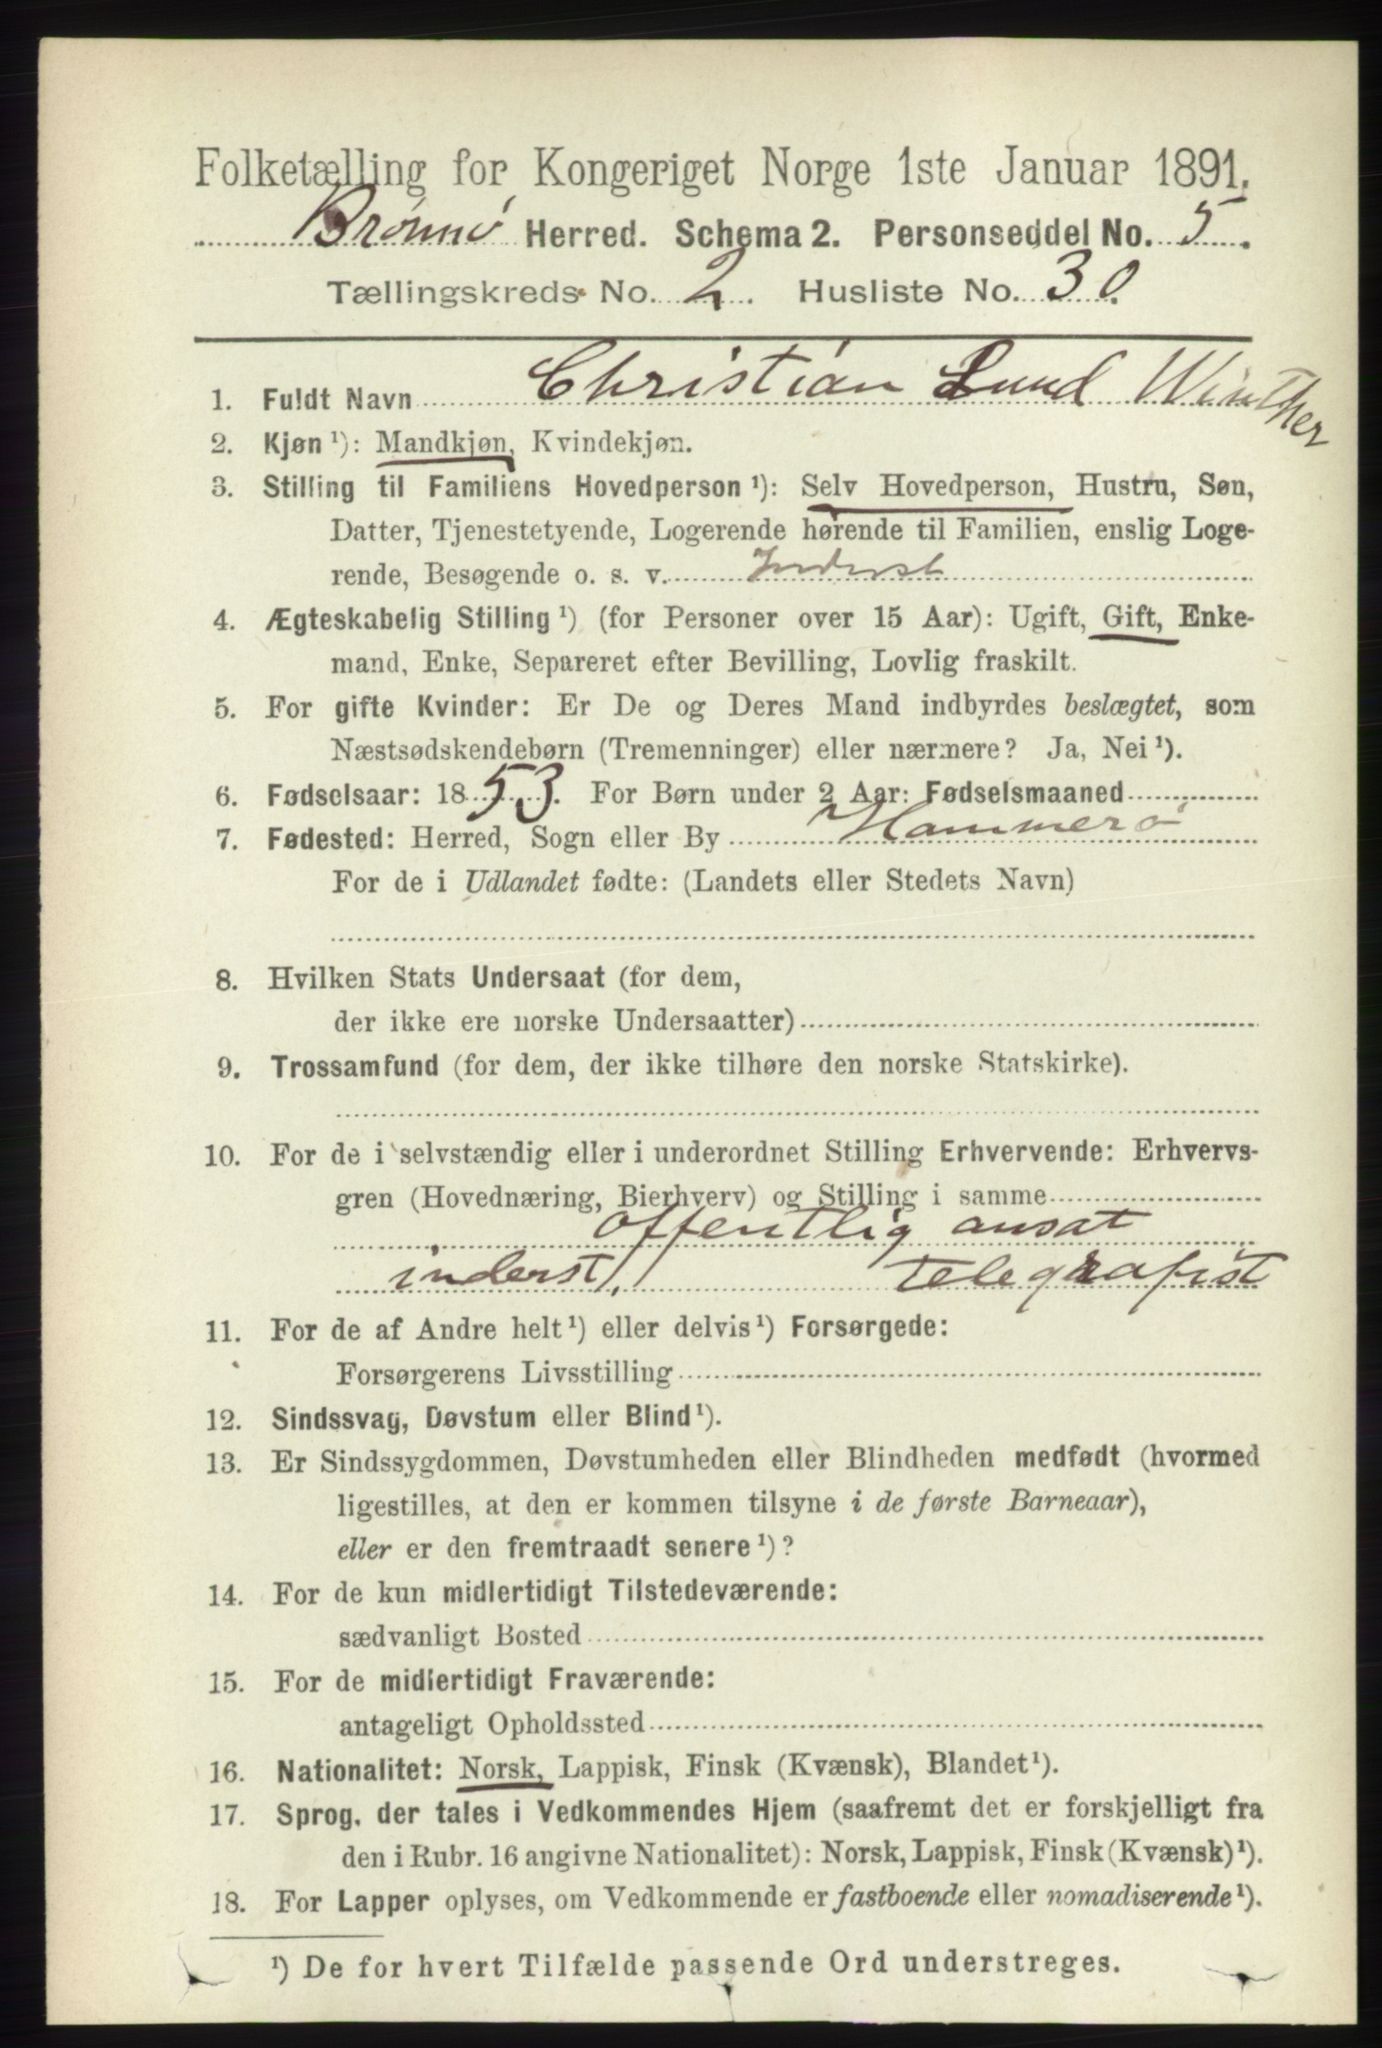 Folketælling for Kongeriget Norge 1ste Januar 1891.
Brønnø Herred. Schema 2. Personseddel No. 5.
Tællingskreds No. 2. Husliste No. 30.
1. Fuldt Navn Christian Lund Winther
2. Kjøn ¹): Mandkjøn, Kvindekjøn.
3. Stilling til Familiens Hovedperson ¹): Selv Hovedperson, Hustru, Søn,
Datter, Tjenestetyende, Logerende hørende til Familien, enslig Loge-
rende, Besøgende o. s. v. Inderst
4. Ægteskabelig Stilling ¹) (for Personer over 15 Aar): Ugift, Gift, Enke-
mand, Enke, Separeret efter Bevilling, Lovlig fraskilt.
5. For gifte Kvinder: Er De og Deres Mand indbyrdes beslægtet, som
Næstsødskendebørn (Tremenninger) eller nærmere? Ja, Nei ¹).
6. Fødselsaar: 1853. For Børn under 2 Aar: Fødselsmaaned
7. Fødested: Herred, Sogn eller By Hammerø
For de i Udlandet fødte: (Landets eller Stedets Navn)
8. Hvilken Stats Undersaat (for dem,
der ikke ere norske Undersaatter)
9. Trossamfund (for dem, der ikke tilhøre den norske Statskirke).
10. For de i selvstændig eller i underordnet Stilling Erhvervende: Erhvervs-
gren (Hovednæring, Bierhverv) og Stilling i samme
offentlig ansat
inderst, telegrafist
11. For de af Andre helt ¹) eller delvis ¹) Forsørgede:
Forsørgerens Livsstilling
12. Sindssvag, Døvstum eller Blind ¹).
13. Er Sindssygdommen, Døvstumheden eller Blindheden medfødt (hvormed
ligestilles, at den er kommen tilsyne i de første Barneaar),
eller er den fremtraadt senere ¹)?
14. For de kun midlertidigt Tilstedeværende:
sædvanligt Bosted
15. For de midlertidigt Fraværende:
antageligt Opholdssted
16. Nationalitet: Norsk, Lappisk, Finsk (Kvænsk), Blandet ¹).
17. Sprog, der tales i Vedkommendes Hjem (saafremt det er forskjelligt fra
den i Rubr. 16 angivne Nationalitet): Norsk, Lappisk, Finsk (Kvænsk) ¹).
18. For Lapper oplyses, om Vedkommende er fastboende eller nomadiserende ¹).
¹) De for hvert Tilfælde passende Ord understreges.